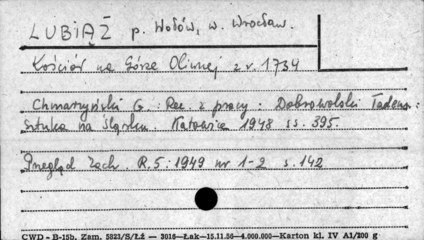 LUBIĄŻ p. Wołów, w. Wrocław.
Kościół na Górze Oliwnej z r. 1734
Chmarzyński G. : Rec. z pracy : Dobrowolski Tadeusz :
Sztuka na Śląsku. Katowice 1948 ss. 395.
Przegląd Zach. R. 5 : 1949 nr 1-2 s. 142
CWD - B-15b. Zam. 5823/S/ŁŻ — 3016—Łak—15.11.56—4.000.000—Karton kl. IV A1/200 g